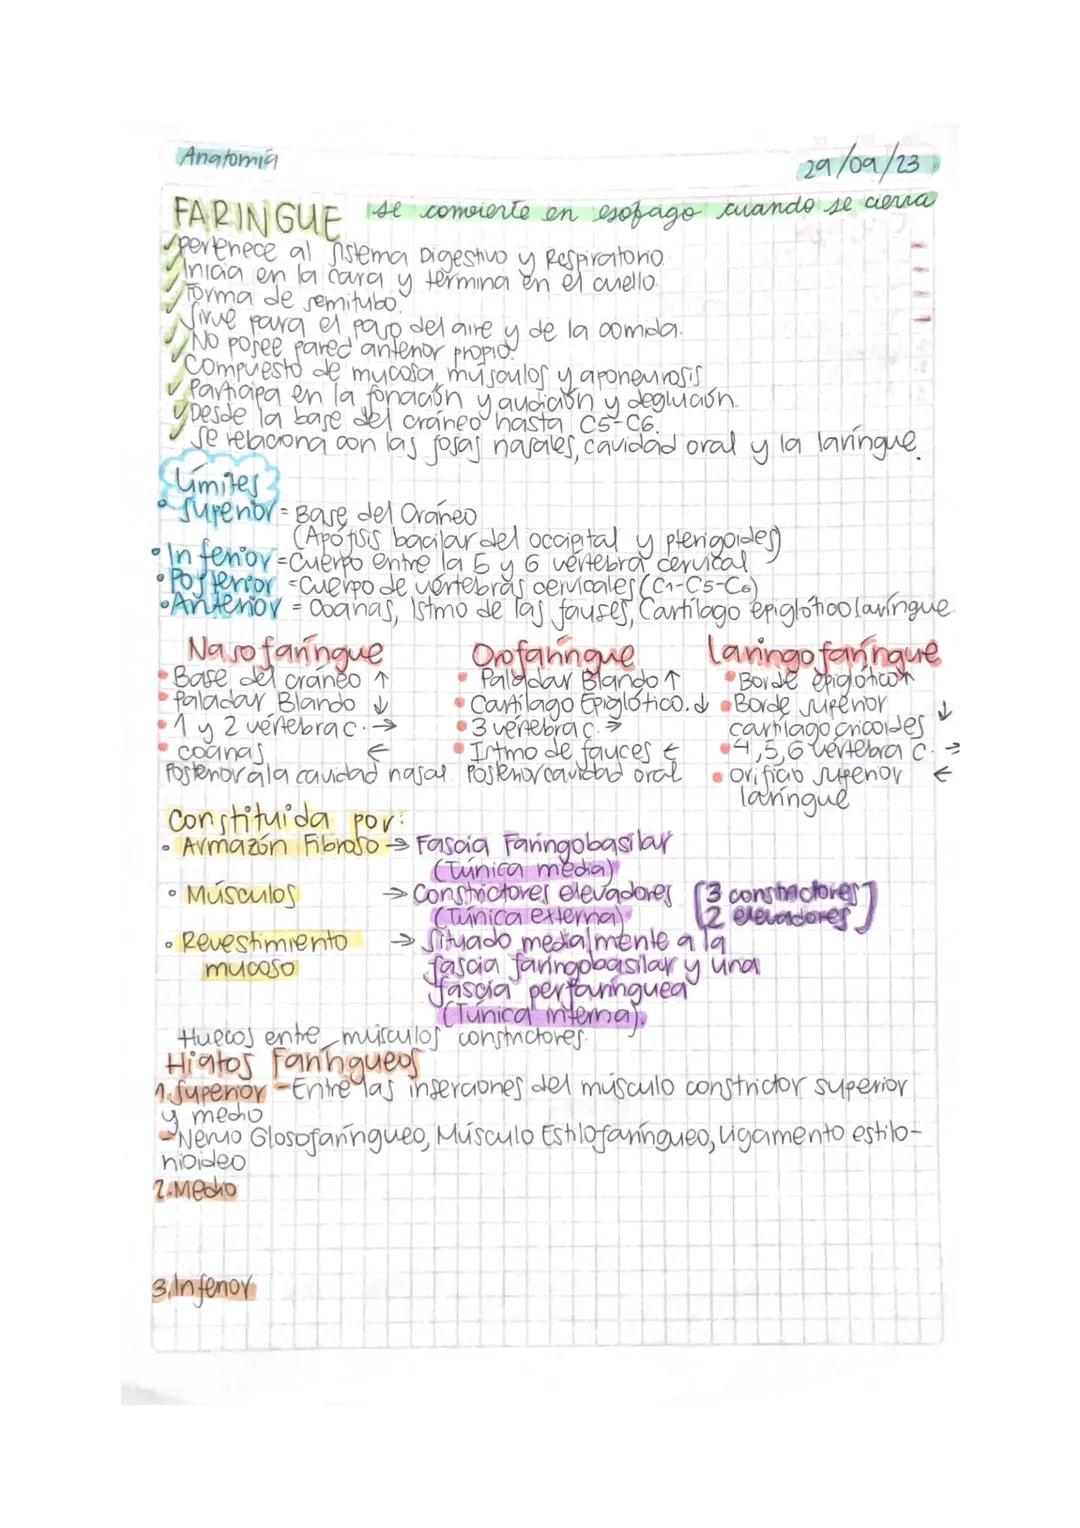 Anatomía 29/09/23
FARINGUE se convierte en esofago cuando se cierra
Pertenece al Sistema Digestivo y Respiratorio
Inicia en la cara y termina en el cuello.
Forma de semitubo.
Sirve para el paso del aire y de la comida.
No posee pared anterior propio.
Compuesto de mucosa, músculos y aponeurosis
Participa en la fonación y audición y deglución.
Desde la base del cráneo hasta C5-C6.
Se relaciona con las fosas nasales, cavidad oral y la laringue.
Límites
• Superior = Base del Cráneo
(Apófisis bacilar del occipital y pterigoides)
• Inferior = Cuerpo entre la 5 y 6 vértebra cervical
• Posterior = Cuerpo de vértebras cervicales (C1-C5-C6)
• Anterior = Coanas, Istmo de las fauses, Cartílago epiglótico laríngue
Nasofaríngue Orofaríngue Laringofaríngue
• Base del cráneo ↑ • Paladar Blando ↑ • Borde epiglótico ↑
• Paladar Blando ↓ • Cartílago Epiglótico. ↓ • Borde superior
• 1 y 2 vértebra c. → • 3 vértebra c. → cartílago cricoides ↓
• coanas ← • Istmo de fauces ← • 4,5,6 vértebra C. →
Posterior a la cavidad nasal Posterior cavidad oral • orificio superior ←
laríngue
Constituida por:
• Armazón Fibroso → Fascia Faringobasilar
(Túnica media)
• Músculos → Constrictores elevadores [3 constrictores]
(Túnica externa) [2 elevadores]
• Revestimiento → Situado medialmente a la
mucoso fascia faringobasilar y una
fascia perfaringuea
(Túnica interna).
Huecos entre músculos constrictores.
Hiatos Faríngueos
1. Superior - Entre las inserciones del músculo constrictor superior
y medio
- Nervio Glosofaríngueo, Músculo Estilofaríngueo, Ligamento estilo-
hioideo
2. Medio
3. Inferior